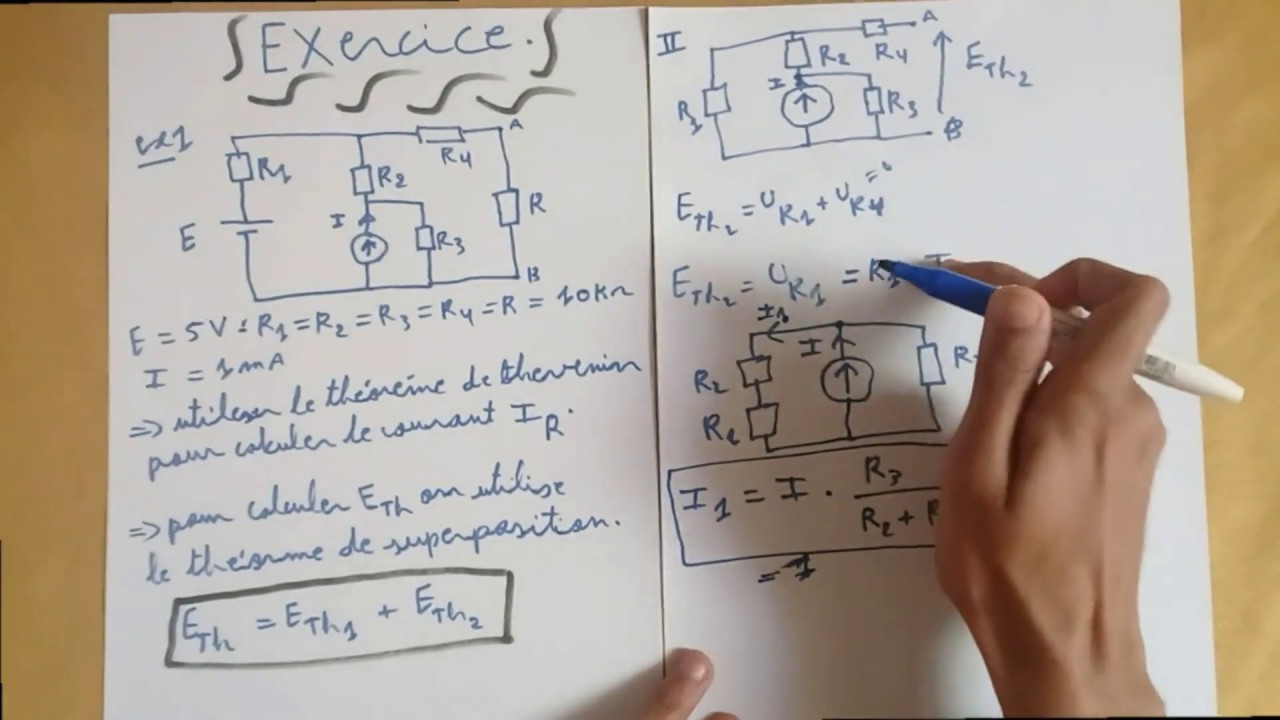 Exercice.
ex1
R1
R2
R4
A
E
I
R3
R
B
E = 5V : R1 = R2 = R3 = R4 = R = 10KΩ
I = 1mA
=> utiliser le théorème de thevenin
pour calculer le courant IR.
=> pour calculer ETh on utilise
le théorème de superposition.
ETh = ETh1 + ETh2
II
R1
R2
R4
A
I
R3
B
ETh2
ETh2 = UR1 + UR4 = 0
ETh2 = UR1 = R1 I
I1
I
R2
I1 = I . R3
R2 +
= 1